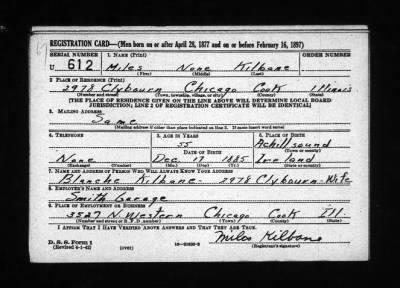 REGISTRATION CARD—(Men born on or after April 28, 1877 and on or before February 16, 1897)
SERIAL NUMBER 1. NAME (Print) ORDER NUMBER
U 612 Miles None Kilbane
(First) (Middle) (Last)
2. PLACE OF RESIDENCE (Print)
2978 Clybourn Chicago Cook Illinois
(Number and street) (Town, township, village, or city) (County) (State)
[THE PLACE OF RESIDENCE GIVEN ON THE LINE ABOVE WILL DETERMINE LOCAL BOARD
JURISDICTION; LINE 2 OF REGISTRATION CERTIFICATE WILL BE IDENTICAL]
3. MAILING ADDRESS
Same
[Mailing address if other than place indicated on line 2. If same insert word same]
4. TELEPHONE 5. AGE IN YEARS 6. PLACE OF BIRTH
55 Achillsound
DATE OF BIRTH (Town or county)
None Dec 17 1885 Ireland
(Exchange) (Number) (Mo.) (Day) (Yr.) (State or country)
7. NAME AND ADDRESS OF PERSON WHO WILL ALWAYS KNOW YOUR ADDRESS
Blanche Kilbane - 2978 Clybourn - Wife
8. EMPLOYER'S NAME AND ADDRESS
Smith Garage
9. PLACE OF EMPLOYMENT OR BUSINESS
3527 N. Western Chicago Cook Ill.
(Number and street or R. F. D. number) (Town) (County) (State)
I AFFIRM THAT I HAVE VERIFIED ABOVE ANSWERS AND THAT THEY ARE TRUE.
Miles Kilbane
D. S. S. Form 1
(Revised 4-1-42) (over) (Registrant's signature)